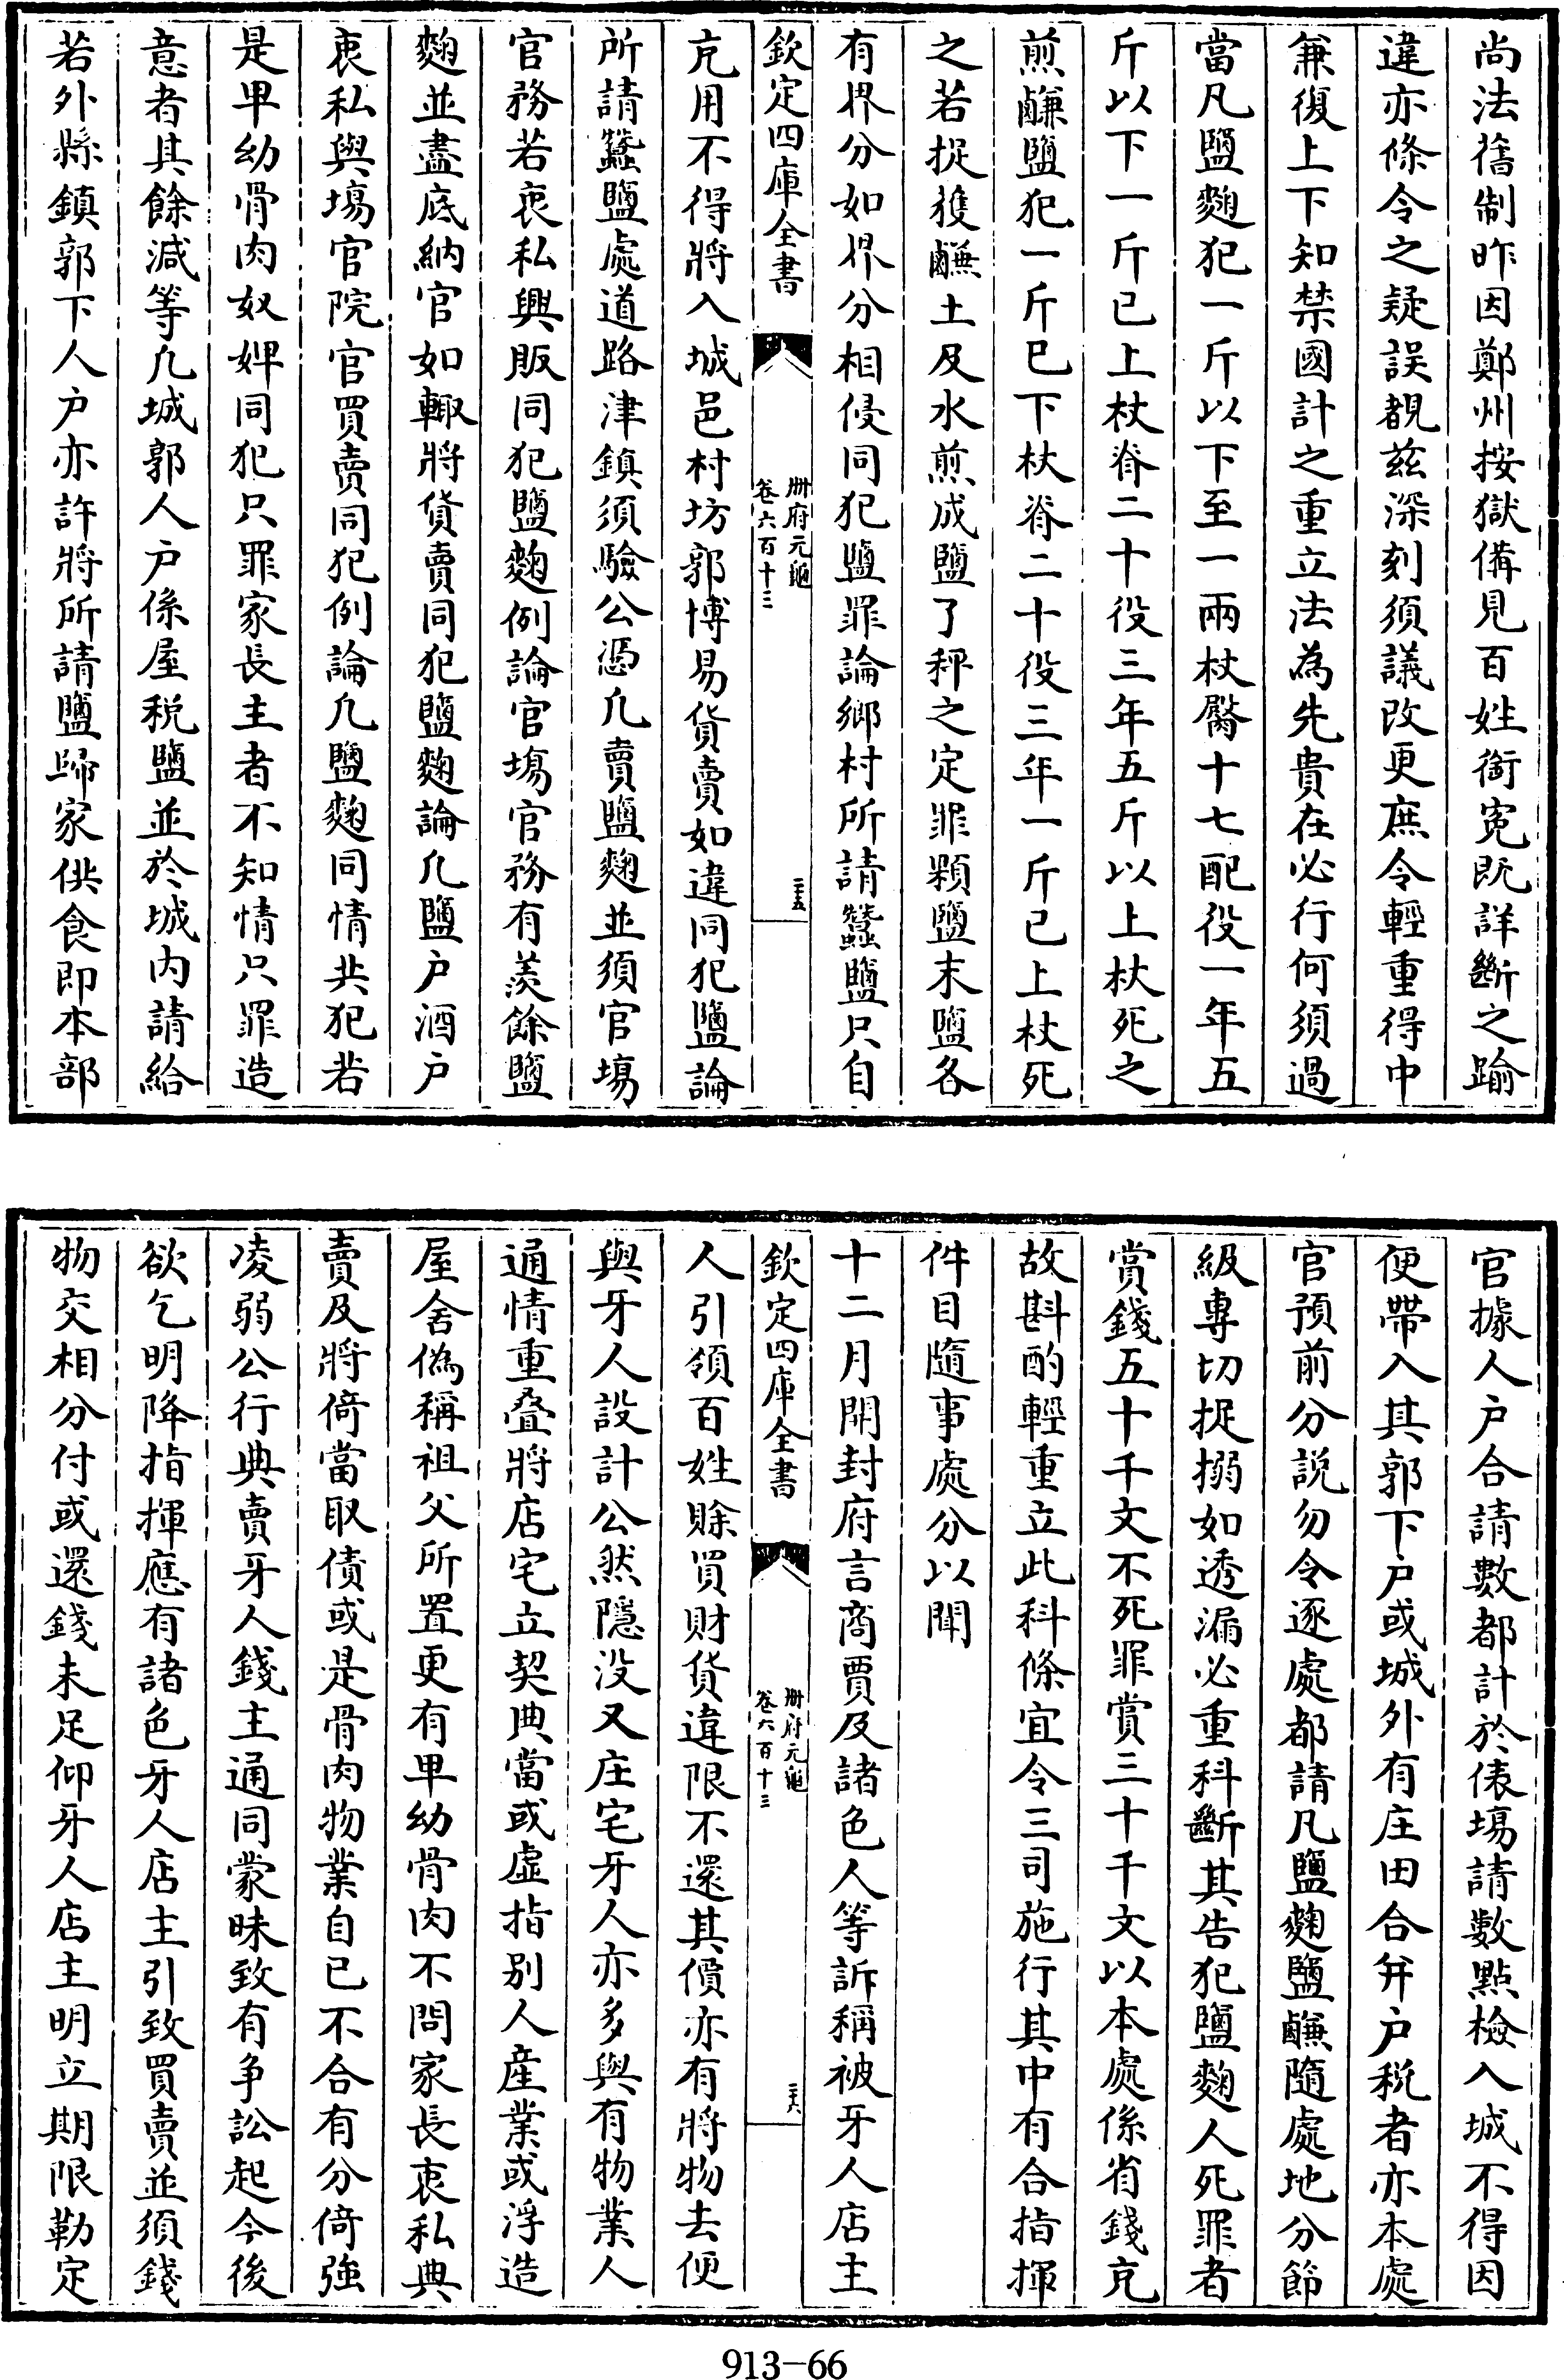 尚法舊制昨因鄭州按獄備見百姓銜寃既詳斷之踰
違亦條令之疑誤覩兹深刻須議改更庶令輕重得中
兼復上下知禁國計之重立法為先貴在必行何須過
當凡鹽麴犯一斤以下至一兩杖臀十七配役一年五
斤以下一斤已上杖脊二十役三年五斤以上杖死之
煎鹻鹽犯一斤已下杖脊二十役三年一斤已上杖死
之若捉獲鹻土及水煎成鹽了秤之定罪顆鹽末鹽各
有界分如界分相侵同犯鹽罪論鄉村所請蠶鹽只自
欽定四庫全書
冊府元龜
卷六百十三
二十五
充用不得將入城邑村坊郭博易貨賣如違同犯鹽論
所請蠶鹽處道路津鎮須驗公憑凡賣鹽麴並須官場
官務若衷私興販同犯鹽麴例論官場官務有羨餘鹽
麴並盡底納官如輙將貨賣同犯鹽麴論凡鹽户酒户
衷私與場官院官買賣同犯例論凡鹽麴同情共犯若
是卑幼骨肉奴婢同犯只罪家長主者不知情只罪造
意者其餘減等凡城郭人户係屋税鹽並於城内請給
若外縣鎮郭下人户亦許將所請鹽歸家供食即本部
官據人户合請數都計於俵場請數點檢入城不得因
便帶入其郭下户或城外有庄田合并户税者亦本處
官預前分説勿令逐處都請凡鹽麴鹽鹻隨處地分節
級專切捉搦如透漏必重科斷其告犯鹽麴人死罪者
賞錢五十千文不死罪賞三十千文以本處係省錢充
故斟酌輕重立此科條宜令三司施行其中有合指揮
件目隨事處分以聞
十二月開封府言商賈及諸色人等訴稱被牙人店主
欽定四庫全書
冊府元龜
卷六百十三
二十六
人引領百姓賖買財貨違限不還其價亦有將物去便
與牙人設計公然隱没又庄宅牙人亦多與有物業人
通情重叠將店宅立契典當或虚指别人産業或浮造
屋舍偽稱祖父所置更有卑幼骨肉不問家長衷私典
賣及將倚當取債或是骨肉物業自已不合有分倚強
凌弱公行典賣牙人錢主通同蒙昧致有争訟起今後
欲乞明降指揮應有諸色牙人店主引致買賣並須錢
物交相分付或還錢未足仰牙人店主明立期限勒定
913-66